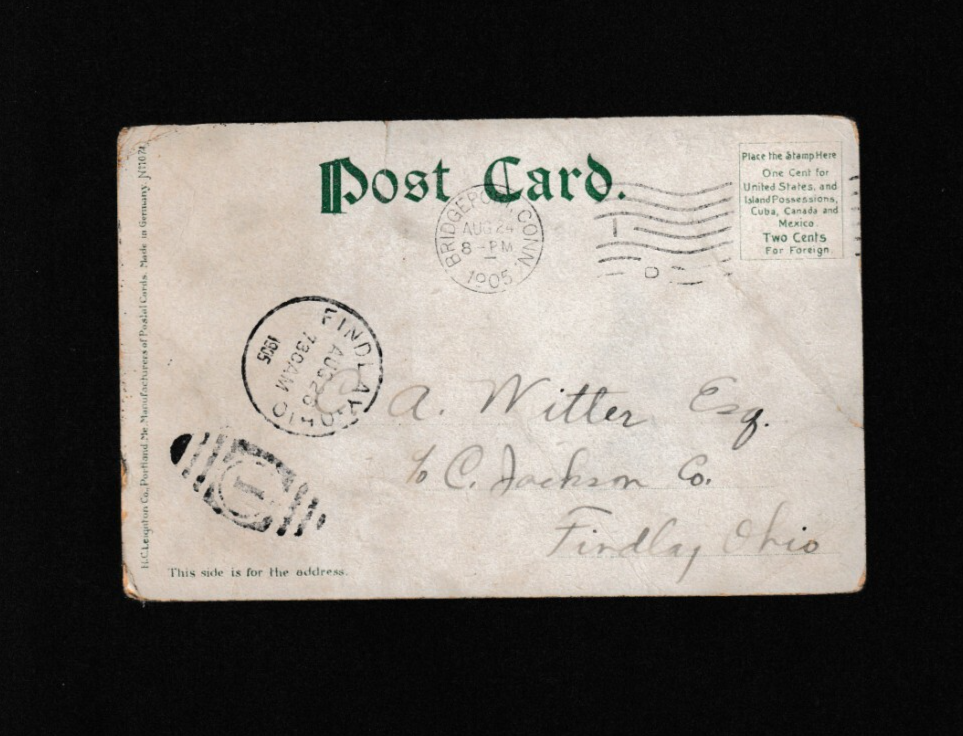 Post Card.
Place the Stamp Here
One Cent for
United States, and
Island Possessions,
Cuba, Canada and
Mexico.
Two Cents
For Foreign.
BRIDGEPORT, CONN.
AUG 24
8 - PM
1905
FINDLAY, OHIO
AUG 26
730AM
1905
1
A. Witter Esq.
c/o C. Jackson Co.
Findlay Ohio
This side is for the address.
H.C. Leighton Co., Portland, Me. Manufacturers of Postal Cards. Made in Germany.